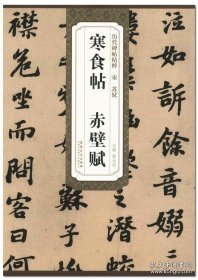 如訴餘音嫋
之潛蛟
历代碑帖精粹 宋 苏轼
寒食帖 赤壁赋
襟危坐而問客曰何